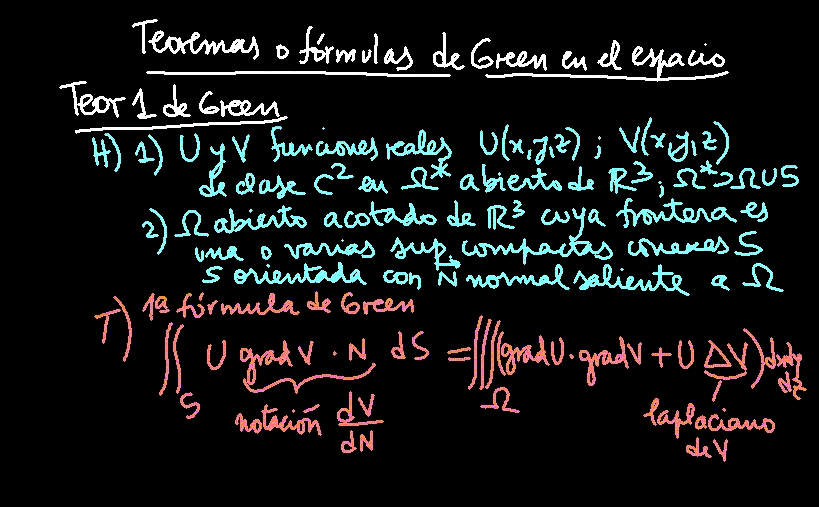 Teoremas o fórmulas de Green en el espacio
Teor 1 de Green
H) 1) U y V funciones reales U(x,y,z) ; V(x,y,z)
de clase C² en Ω* abierto de ℝ³ ; Ω* ⊃ Ω∪S
2) Ω abierto acotado de ℝ³ cuya frontera es
una o varias sup. compactas conexas S
S orientada con N⃗ normal saliente a Ω
T) 1ª fórmula de Green
∬_S U grad V · N dS = ∭_Ω (grad U · grad V + U ΔV) dxdydz
notación dV/dN
laplaciano de V